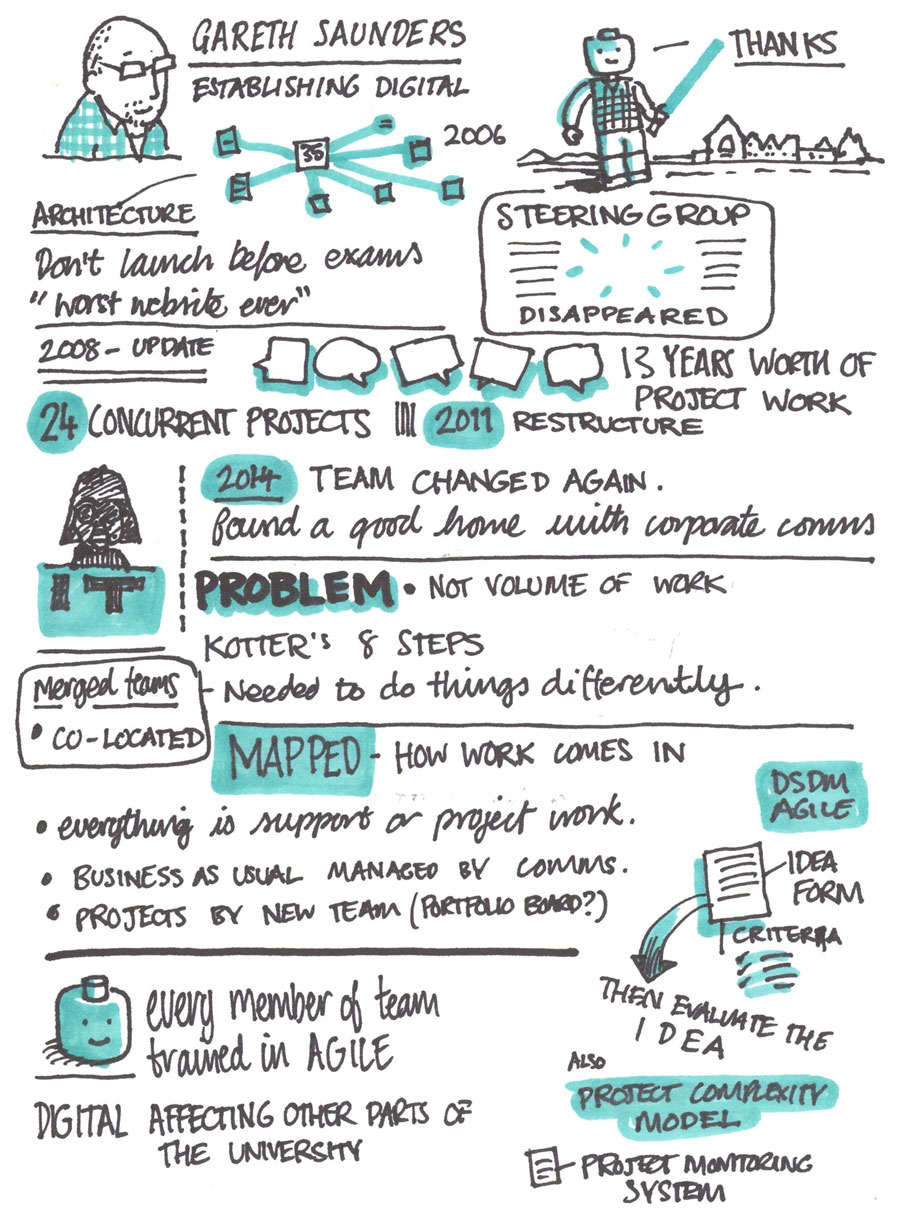 GARETH SAUNDERS
ESTABLISHING DIGITAL
THANKS
2006
35
ARCHITECTURE
Don't launch before exams
"worst website ever"
STEERING GROUP
DISAPPEARED
2008 - UPDATE
13 YEARS WORTH OF
PROJECT WORK
24 CONCURRENT PROJECTS
2011 RESTRUCTURE
2014 TEAM CHANGED AGAIN.
found a good home with corporate comms
IT
PROBLEM • NOT VOLUME OF WORK
KOTTER'S 8 STEPS
- Needed to do things differently.
Merged teams
• CO-LOCATED
MAPPED - HOW WORK COMES IN
• everything is support or project work.
• BUSINESS AS USUAL MANAGED BY COMMS.
• PROJECTS BY NEW TEAM (PORTFOLIO BOARD?)
DSDM
AGILE
IDEA
FORM
CRITERIA
THEN EVALUATE THE
IDEA
every member of team
trained in AGILE
DIGITAL AFFECTING OTHER PARTS OF
THE UNIVERSITY
ALSO
PROJECT COMPLEXITY
MODEL
PROJECT MONITORING
SYSTEM